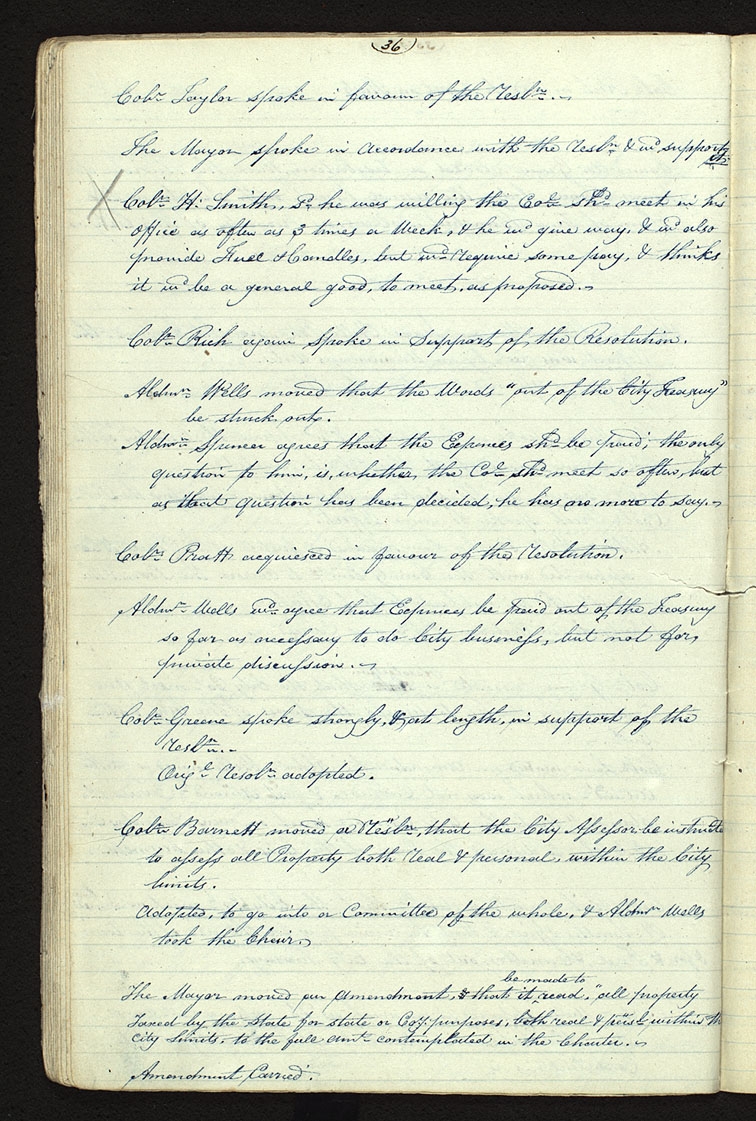 36
Colr. Taylor spoke in favour of the Resln.
The Mayor spoke in accordance with the Resln. & wd support
it.
Colr. H. Smith, Sd. he was willing the Col. shd. meet in his
office as often as 3 times a Week, & he wd give way, & wd also
provide Fuel & Candles, but wd. require some pay, & thinks
it wd be a general good, to meet, as proposed.
Colr. Rich again spoke in Support of the Resolution.
Aldmn. Wells moved that the Words "out of the City Treasury"
be struck out.
Aldmn. Spencer agrees that the Expences shd. be paid; the only
question to him, is, whether the Col. shd meet so often, but
as that question has been decided, he has no more to say.
Colr. Pratt acquiesced in favour of the Resolution.
Aldmn. Wells wd. agree that Expences be paid out of the Treasury
so far as necessary to do City business, but not for
private discussion.
Colr. Greene spoke strongly, & at length, in support of the
Resln.
Origl. Resoln. adopted.
Colr. Barnett moved a Resln., that the City Assessor be instructed
to assess all Property both real & personal, within the City
limits.
Adopted, to go into a Committee of the whole, & Aldmn Wells
took the Chair.
be made to
The Mayor moved an Amendment, & that it read, "all property
Taxed by the State for state or Coy. purposes, both real & persl. within the
City Limits, to the full amt. contemplated in the Charter.
Amendment Carried.